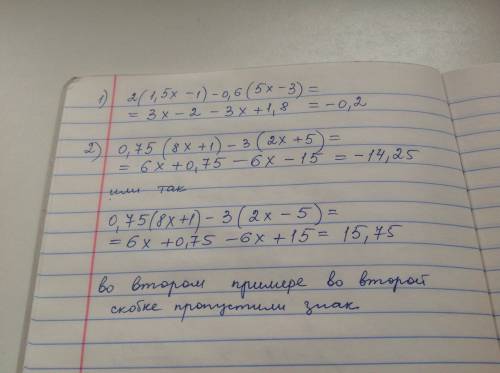 1) 2(1,5x-1)-0,6(5x-3)=
= 3x-2-3x+1,8 = -0,2
2) 0,75(8x+1)-3(2x+5)=
= 6x+0,75-6x-15 = -14,25
или так
0,75(8x+1)-3(2x-5)=
= 6x+0,75-6x+15 = 15,75
во втором примере во второй
скобке пропустили знак.